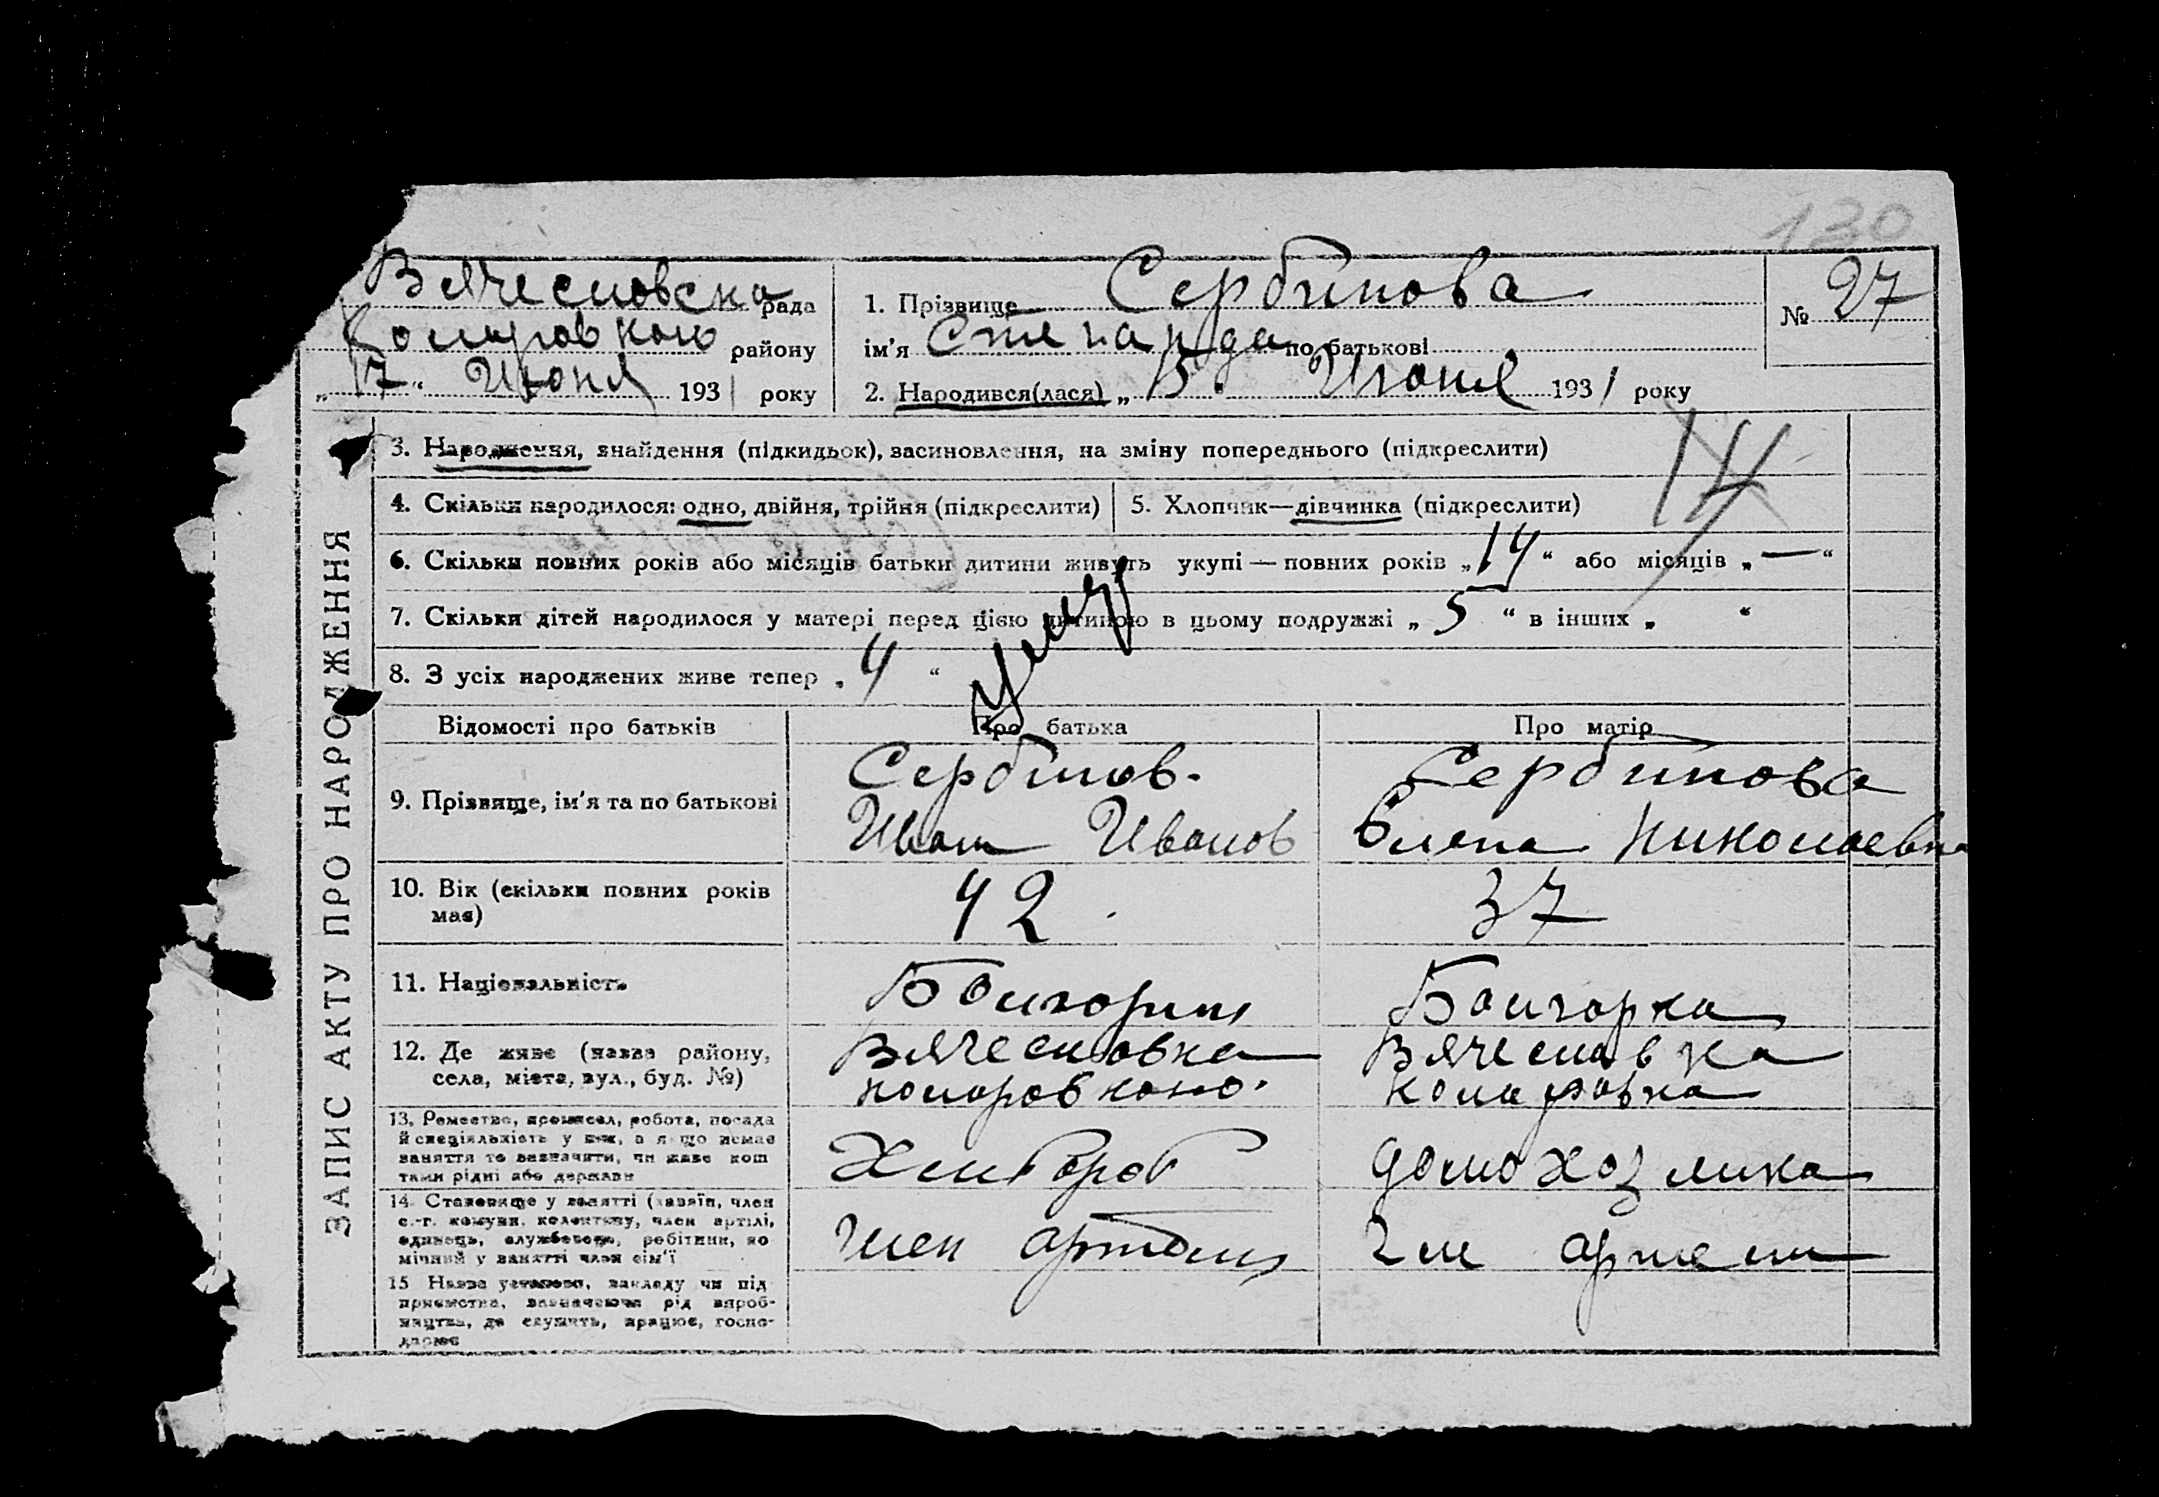 130
Вячесловска рада
Коларовкого району
„ 17 “ Июня 1931 року
1. Прізвище Сербинова
ім'я по батькові
2. Народився(лася) „ 15 Июня 1931 року
№ 27
ЗАПИС АКТУ ПРО НАРОДЖЕННЯ
3. Народження, знайдення (підкидьок), засиновлення, на зміну попереднього (підкреслити)
14
4. Скільки народилося: одно, двійня, трійня (підкреслити)
5. Хлопчик—дівчинка (підкреслити)
6. Скільки повних років або місяців батьки дитини живуть укупі — повних років „ 14 “ або місяців „ — “
7. Скільки дітей народилося у матері перед цією дитиною в цьому подружжі „ 5 “ в інших „ “
8. З усіх народжених живе тепер „ 4 “
Відомості про батьків
Про батька
Про матір
9. Прізвище, ім'я та по батькові
Сербинов.
Иван Иванов
Сербинова
Елена Николаевна
10. Вік (скільки повних років
має)
42
37
11. Національність
Болгорин
Болгорка
12. Де живе (назва району,
села, міста, вул., буд. №)
Вячесловка
Вячеславка
13. Ремество, промисел, робота, посада
й спеціяльність у них, а якщо немає
заняття то зазначити, чи живе кош
тами рідні або держави
Хлибороб
домохозяика
14. Становище у занятті (хазяїн, член
с.-г. комуни, колективу, член артілі,
одинець, службовець, робітник, по
мічний у занятті член сім'ї
член
15 Назва установи, закладу чи під
приємства, зазначаючи рід вироб-
ництва, де служить, працює, госпо-
дарює